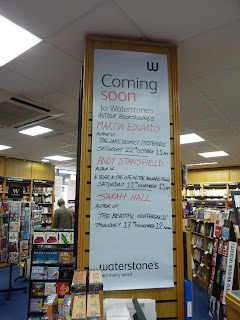 W
Coming
soon
to Waterstone's
AUTHOR BOOKSIGNINGS
MARTIN EDWARDS
AUTHOR OF
THE LAKE DISTRICT MYSTERIES
SATURDAY 22ND OCTOBER 11AM
ANDY STANSFIELD
AUTHOR OF
A YEAR IN THE LIFE OF THE
SATURDAY 12TH NOVEMBER 11AM
SARAH HALL
AUTHOR OF
'THE BEAUTIFUL INDIFFERENCE'
THURSDAY 17TH NOVEMBER 12
waterstone's
feel every word